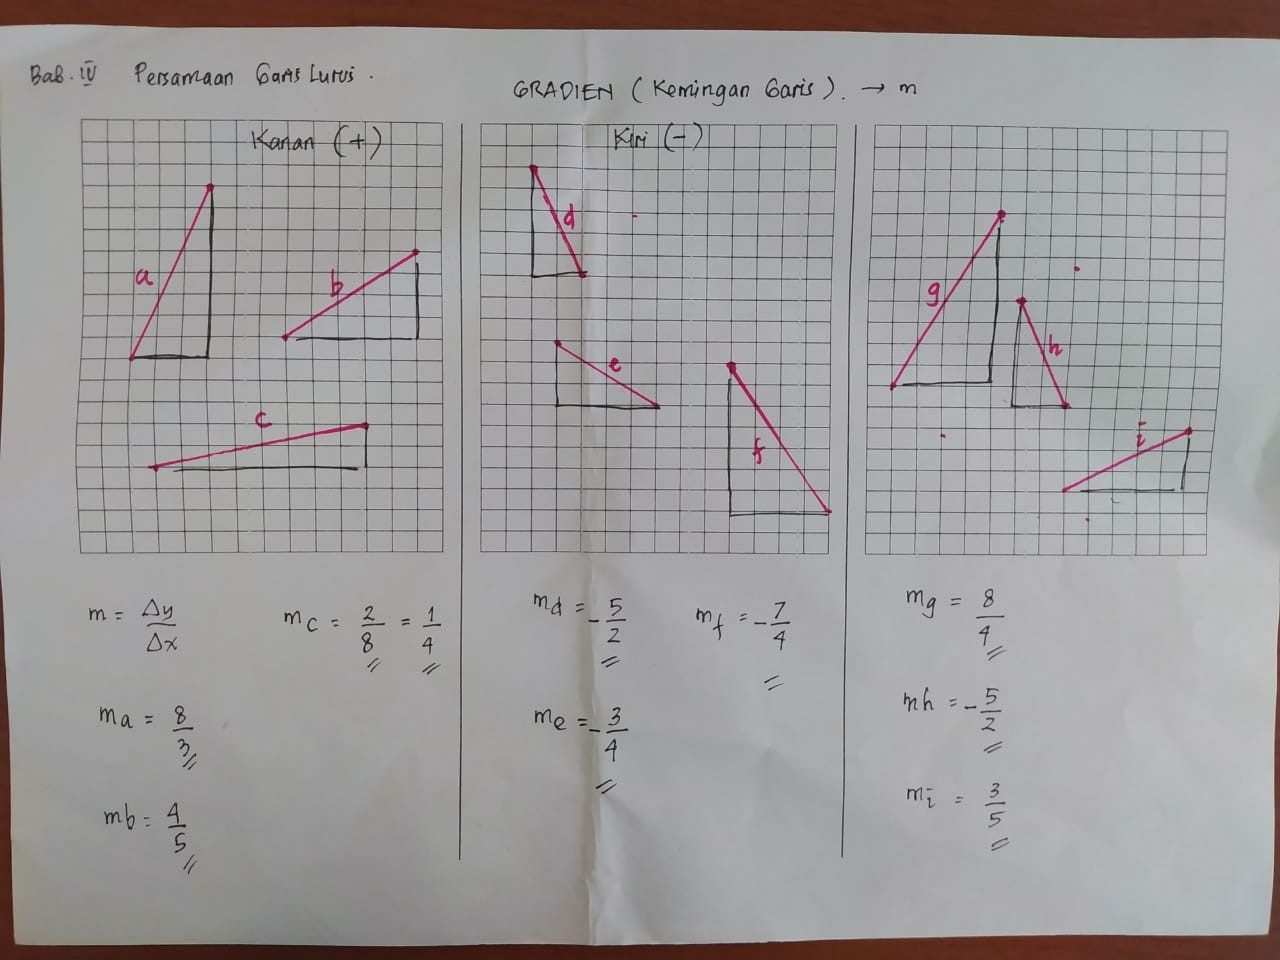 Bab. IV Persamaan Garis Lurus.
GRADIEN (Kemiringan Garis). → m
Kanan (+)
a
b
c
m = Δy/Δx
mc = 2/8 = 1/4
ma = 8/3
mb = 4/5
Kiri (-)
d
e
f
md = -5/2
mf = -7/4
me = -3/4
g
h
i
mg = 8/4
mh = -5/2
mi = 3/5